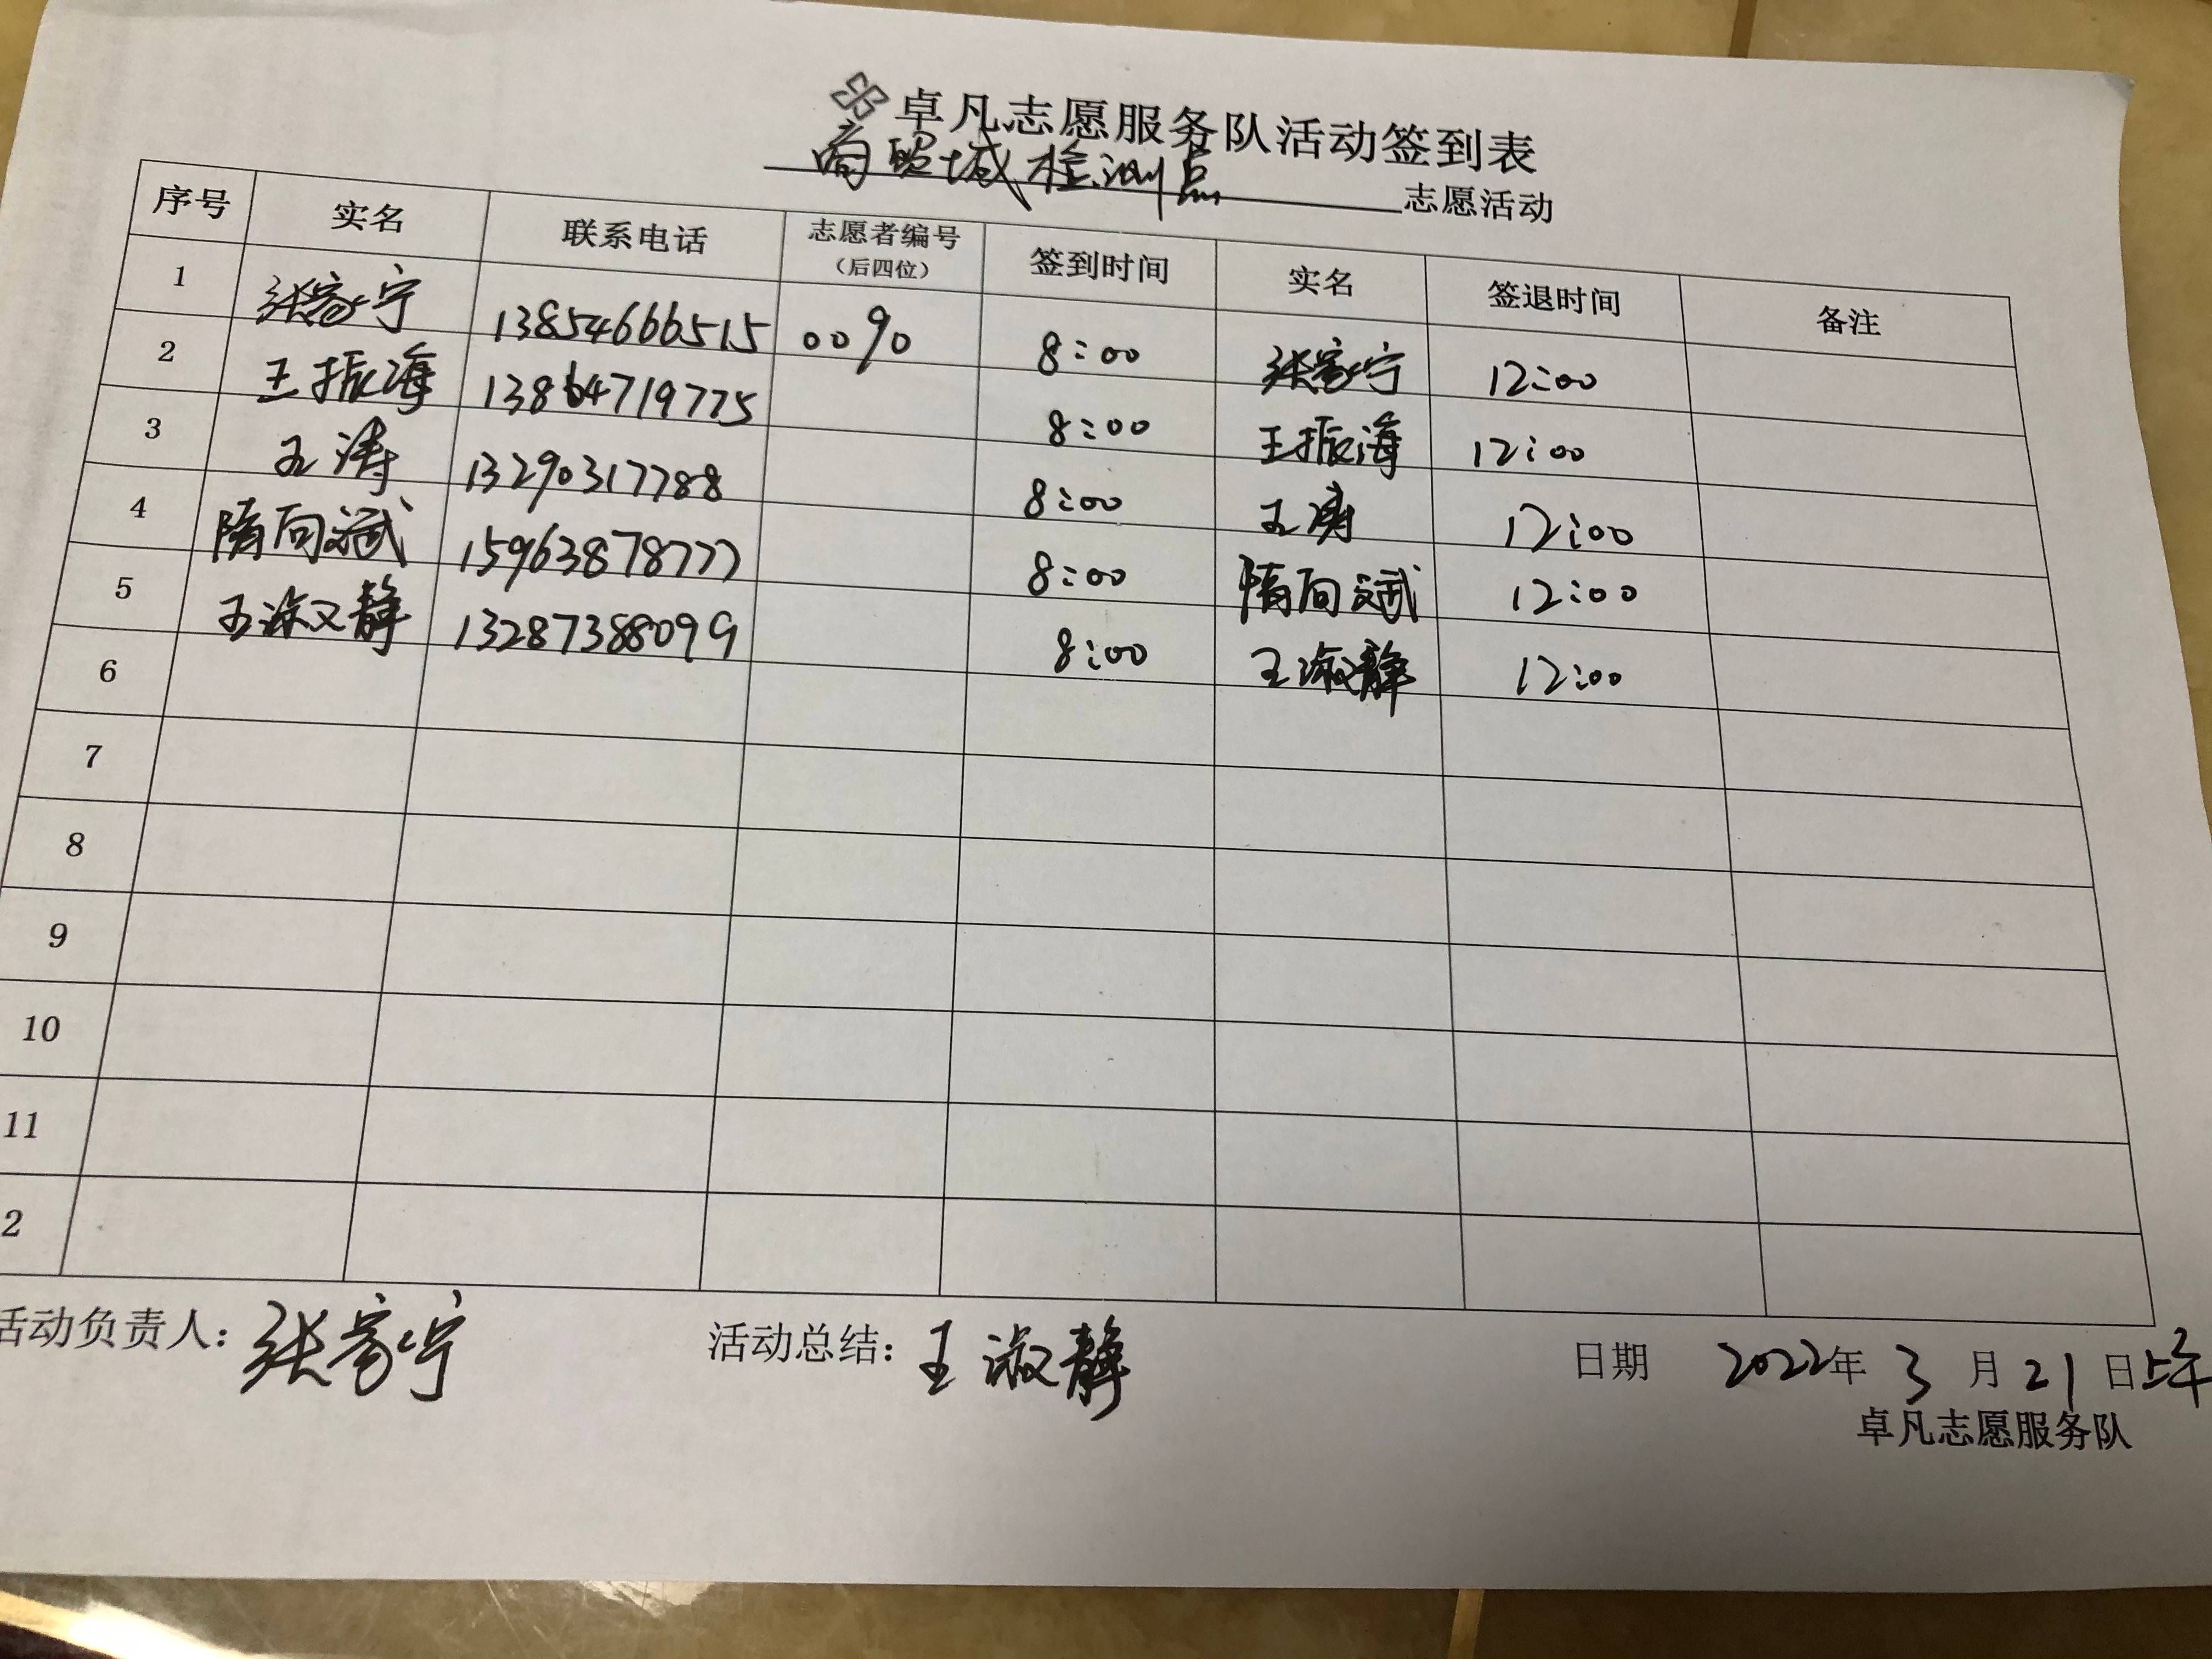 卓凡志愿服务队活动签到表
商贸城检测点 志愿活动
序号 实名 联系电话 志愿者编号（后四位） 签到时间 实名 签退时间 备注
1 张家宁 13854666515 0090 8:00 张家宁 12:00
2 王振海 13864719775 8:00 王振海 12:00
3 王涛 13290317788 8:00 王涛 12:00
4 隋向斌 15963878777 8:00 隋向斌 12:00
5 王淑静 13287388099 8:00 王淑静 12:00
6
7
8
9
10
11
2
活动负责人：张家宁 活动总结：王淑静 日期 2022年3月21日上午
卓凡志愿服务队